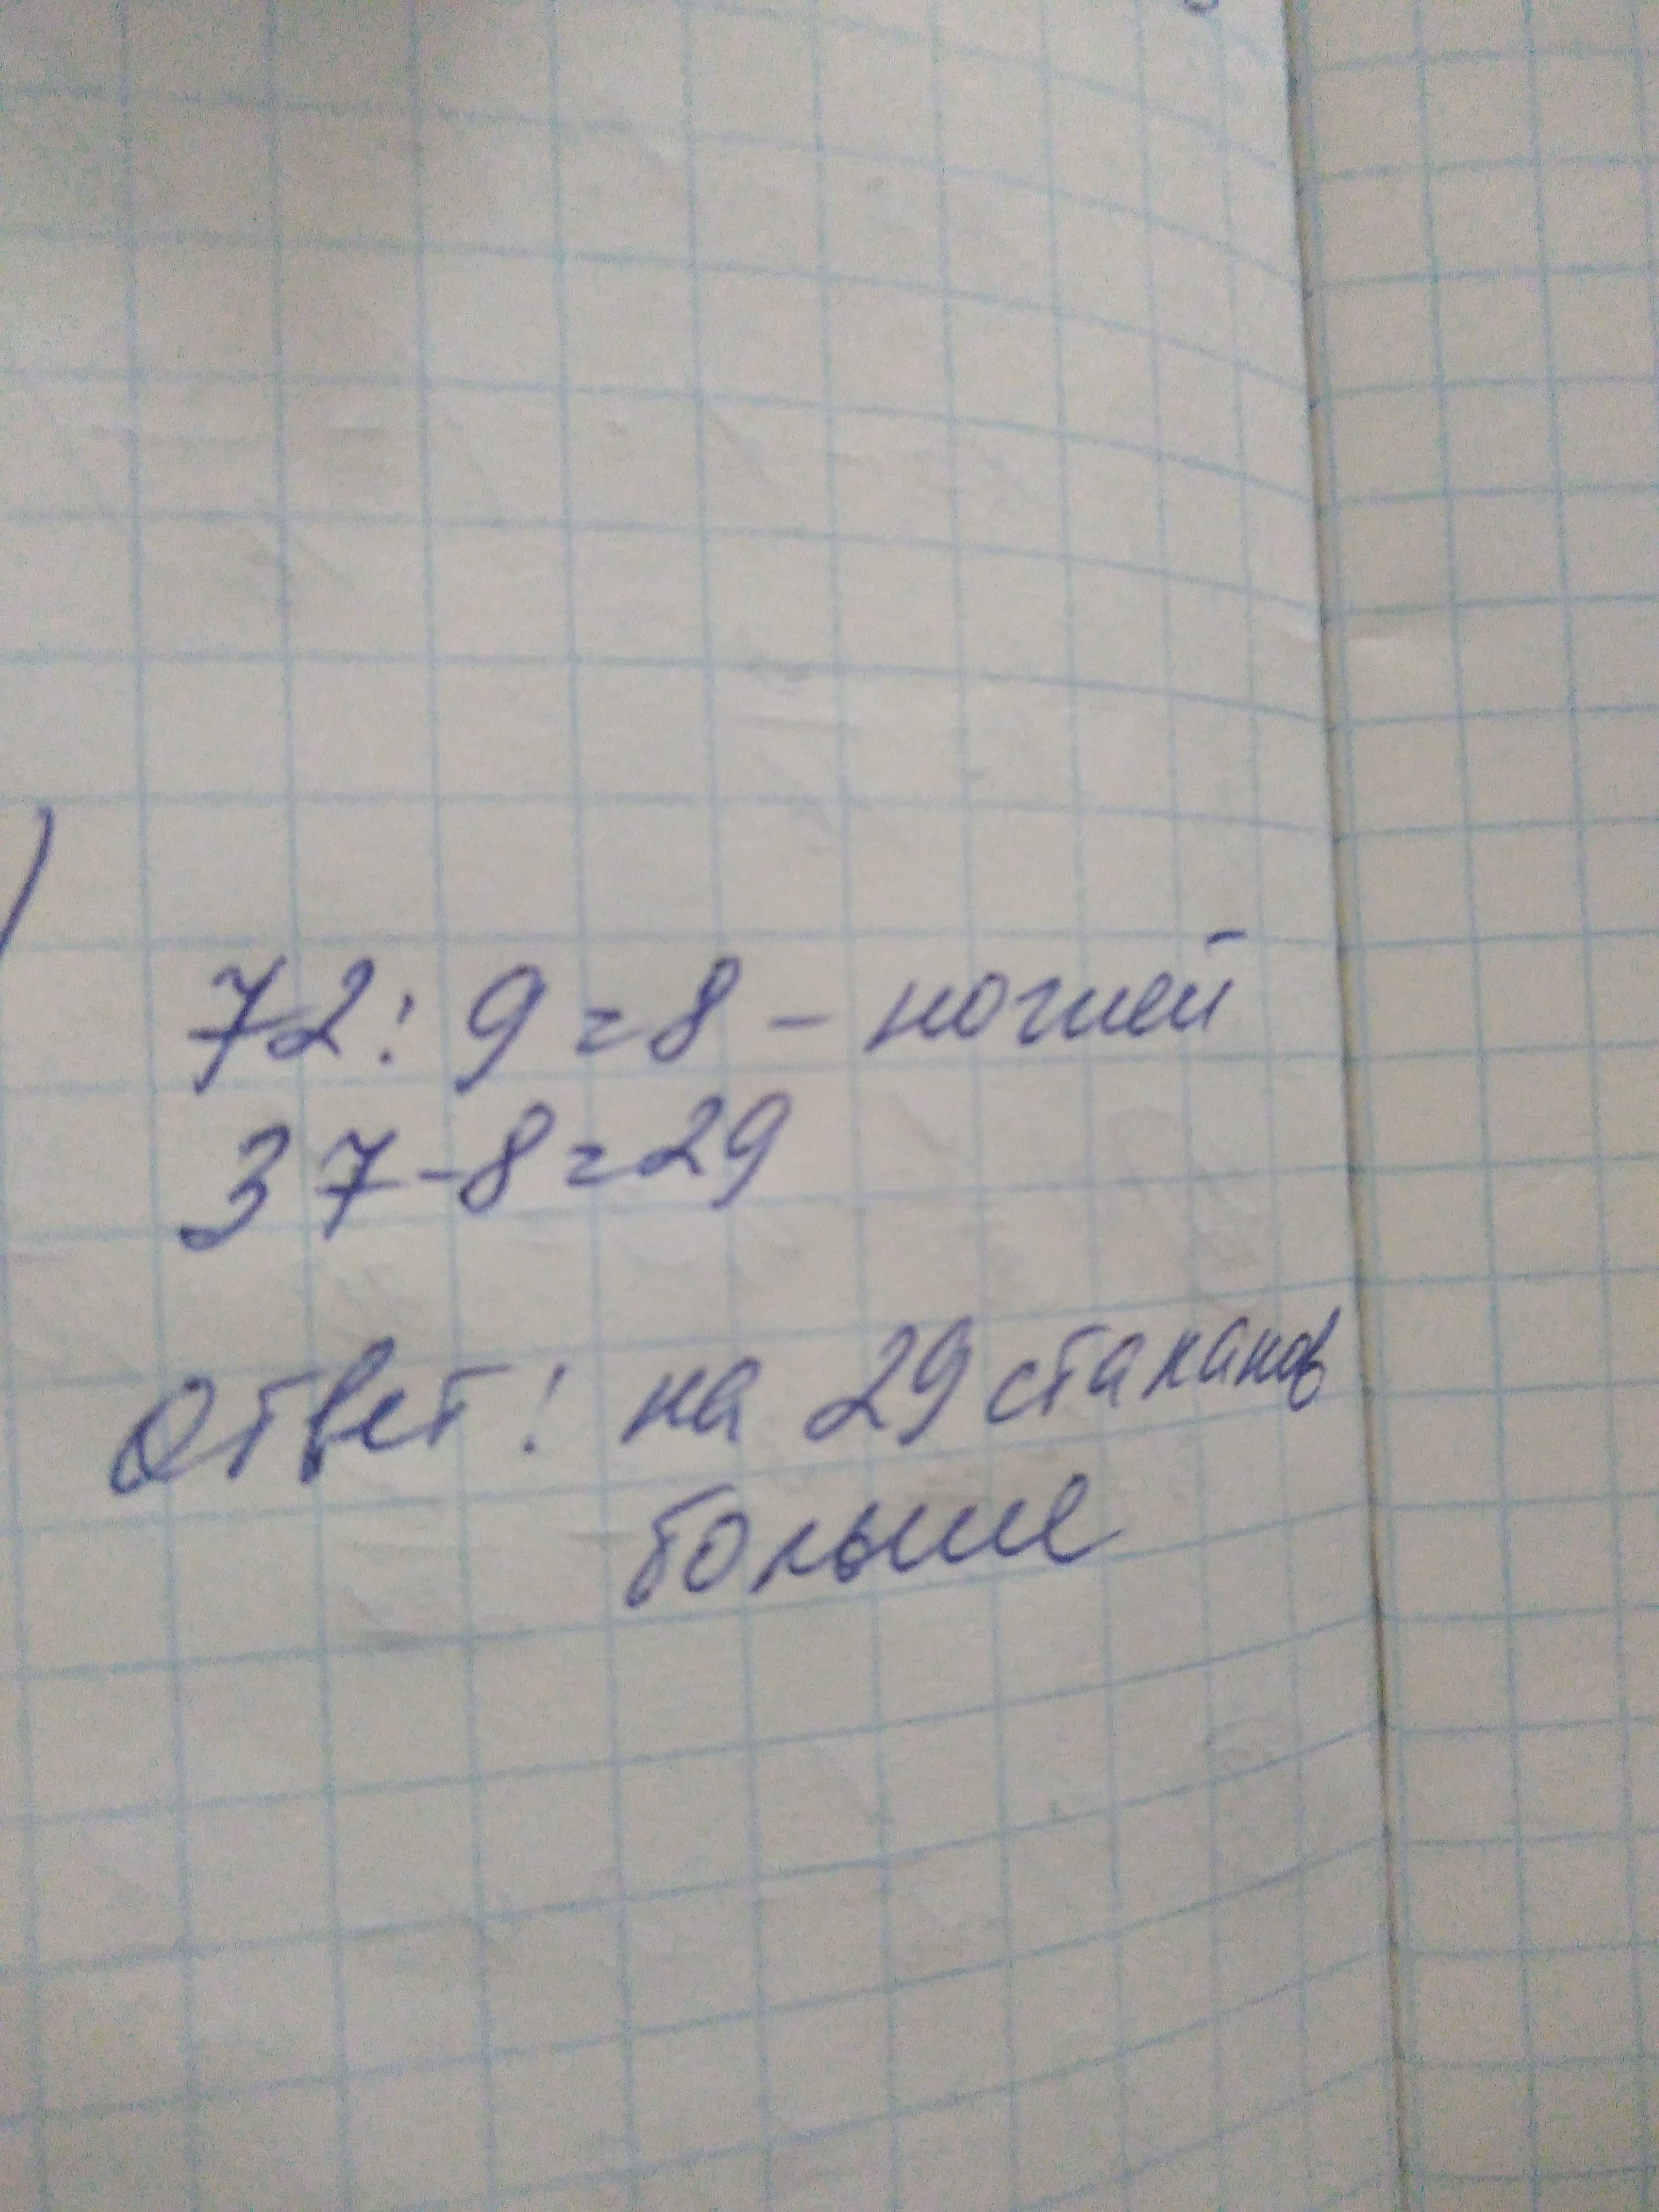 72: 9 = 8 - ножей
37-8=29
Ответ: на 29 стаканов
больше